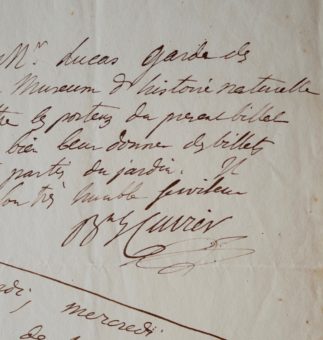 Mr. Lucas garde des
Museum d'histoire naturelle
les porteurs du present billet
bien leur donner des billet
parties du jardin. Il
son très humble serviteur
Bon G Cuvier
di, mercredi
de